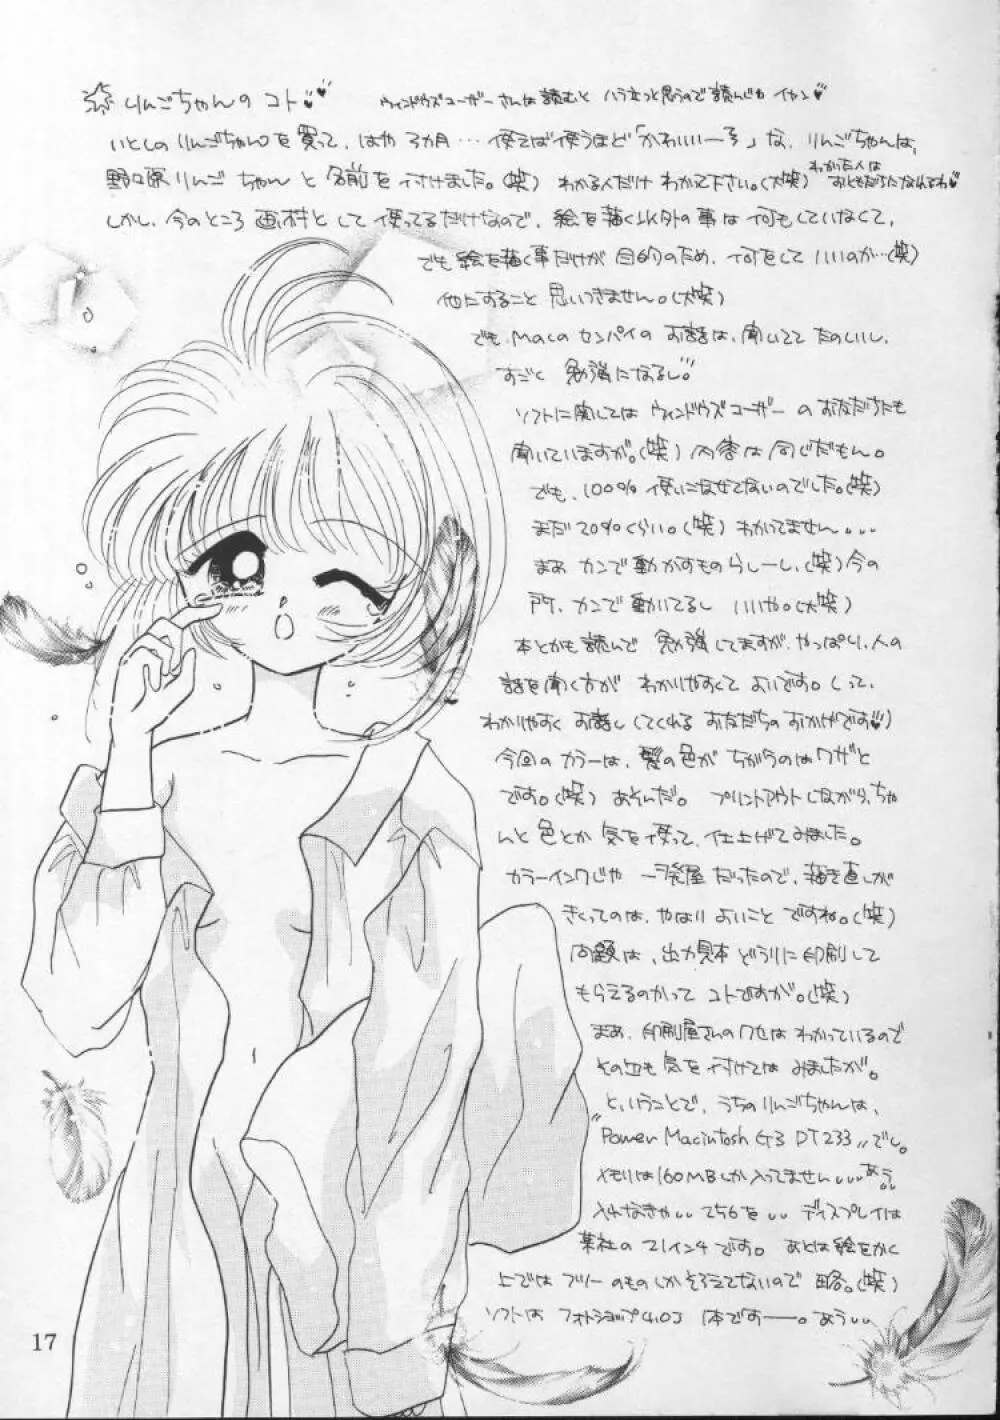 りんごちゃんのコト♥♥ ウィンドウズユーザーさんは読むとハラ立つと思うので読んじゃイヤン♥
いとしのりんごちゃんを買って、はや3カ月…使えば使うほど「かわいいーろ」な、りんごちゃんは、
野々原りんごちゃんと名前を付けました。(笑) わかる人だけわかって下さい。(大笑) わかった人はおともだちになれるわ♥
しかし、今のところ画材として使ってるだけなので、絵を描く以外の事は何もしていなくて、
でも絵を描く事だけが目的のため、何をしていいのか…(笑)
他にすること思いつきません。(大笑)
でも、Macのセンパイのお話は、聞いててたのしいし、
すごく勉強になるし。
ソフトに関してはウィンドウズユーザーのお友だちにも
聞いていますが。(笑) 内容は同じだもん。
でも、100%使いこなせてないのでした。(笑)
まだ20%くらい。(笑) わかってません...
まぁカンで動かすものらしーし、(笑)今の
所、カンで動いてるしいいや。(大笑)
本とかも読んで勉強してますが、やっぱり、人の
話を聞く方がわかりやすくてよいです。しって、
わかりやすくお話ししてくれるお友だちのおかげです♥)
今回のカラーは、髪の色がちがうのはワザと
です。(笑) あそんだ。 プリントアウトしながら、ちゃ
んと色とか気を使って、仕上げてみました。
カラーインクじゃ一発屋だったので、描き直しが
きくってのは、やはりよいことですね。(笑)
問題は、出力見本どうりに印刷して
もらえるのかってコトですが。(笑)
まぁ、印刷屋さんのクセはわかっているので
その辺も気を付けてはみましたが。
と、いうことで、うちのりんごちゃんは、
"Power Macintosh G3 DT233"でし。
メモリは160MBしか入ってません....あぅぅ
入れなきゃ.. 256を.. ディスプレイは
某社の21インチです。 あとは絵をかく
上ではフツーのものしかそろえてないので略。(笑)
ソフトはフォトショップ4.0J 1本ですー。あぅ..
17